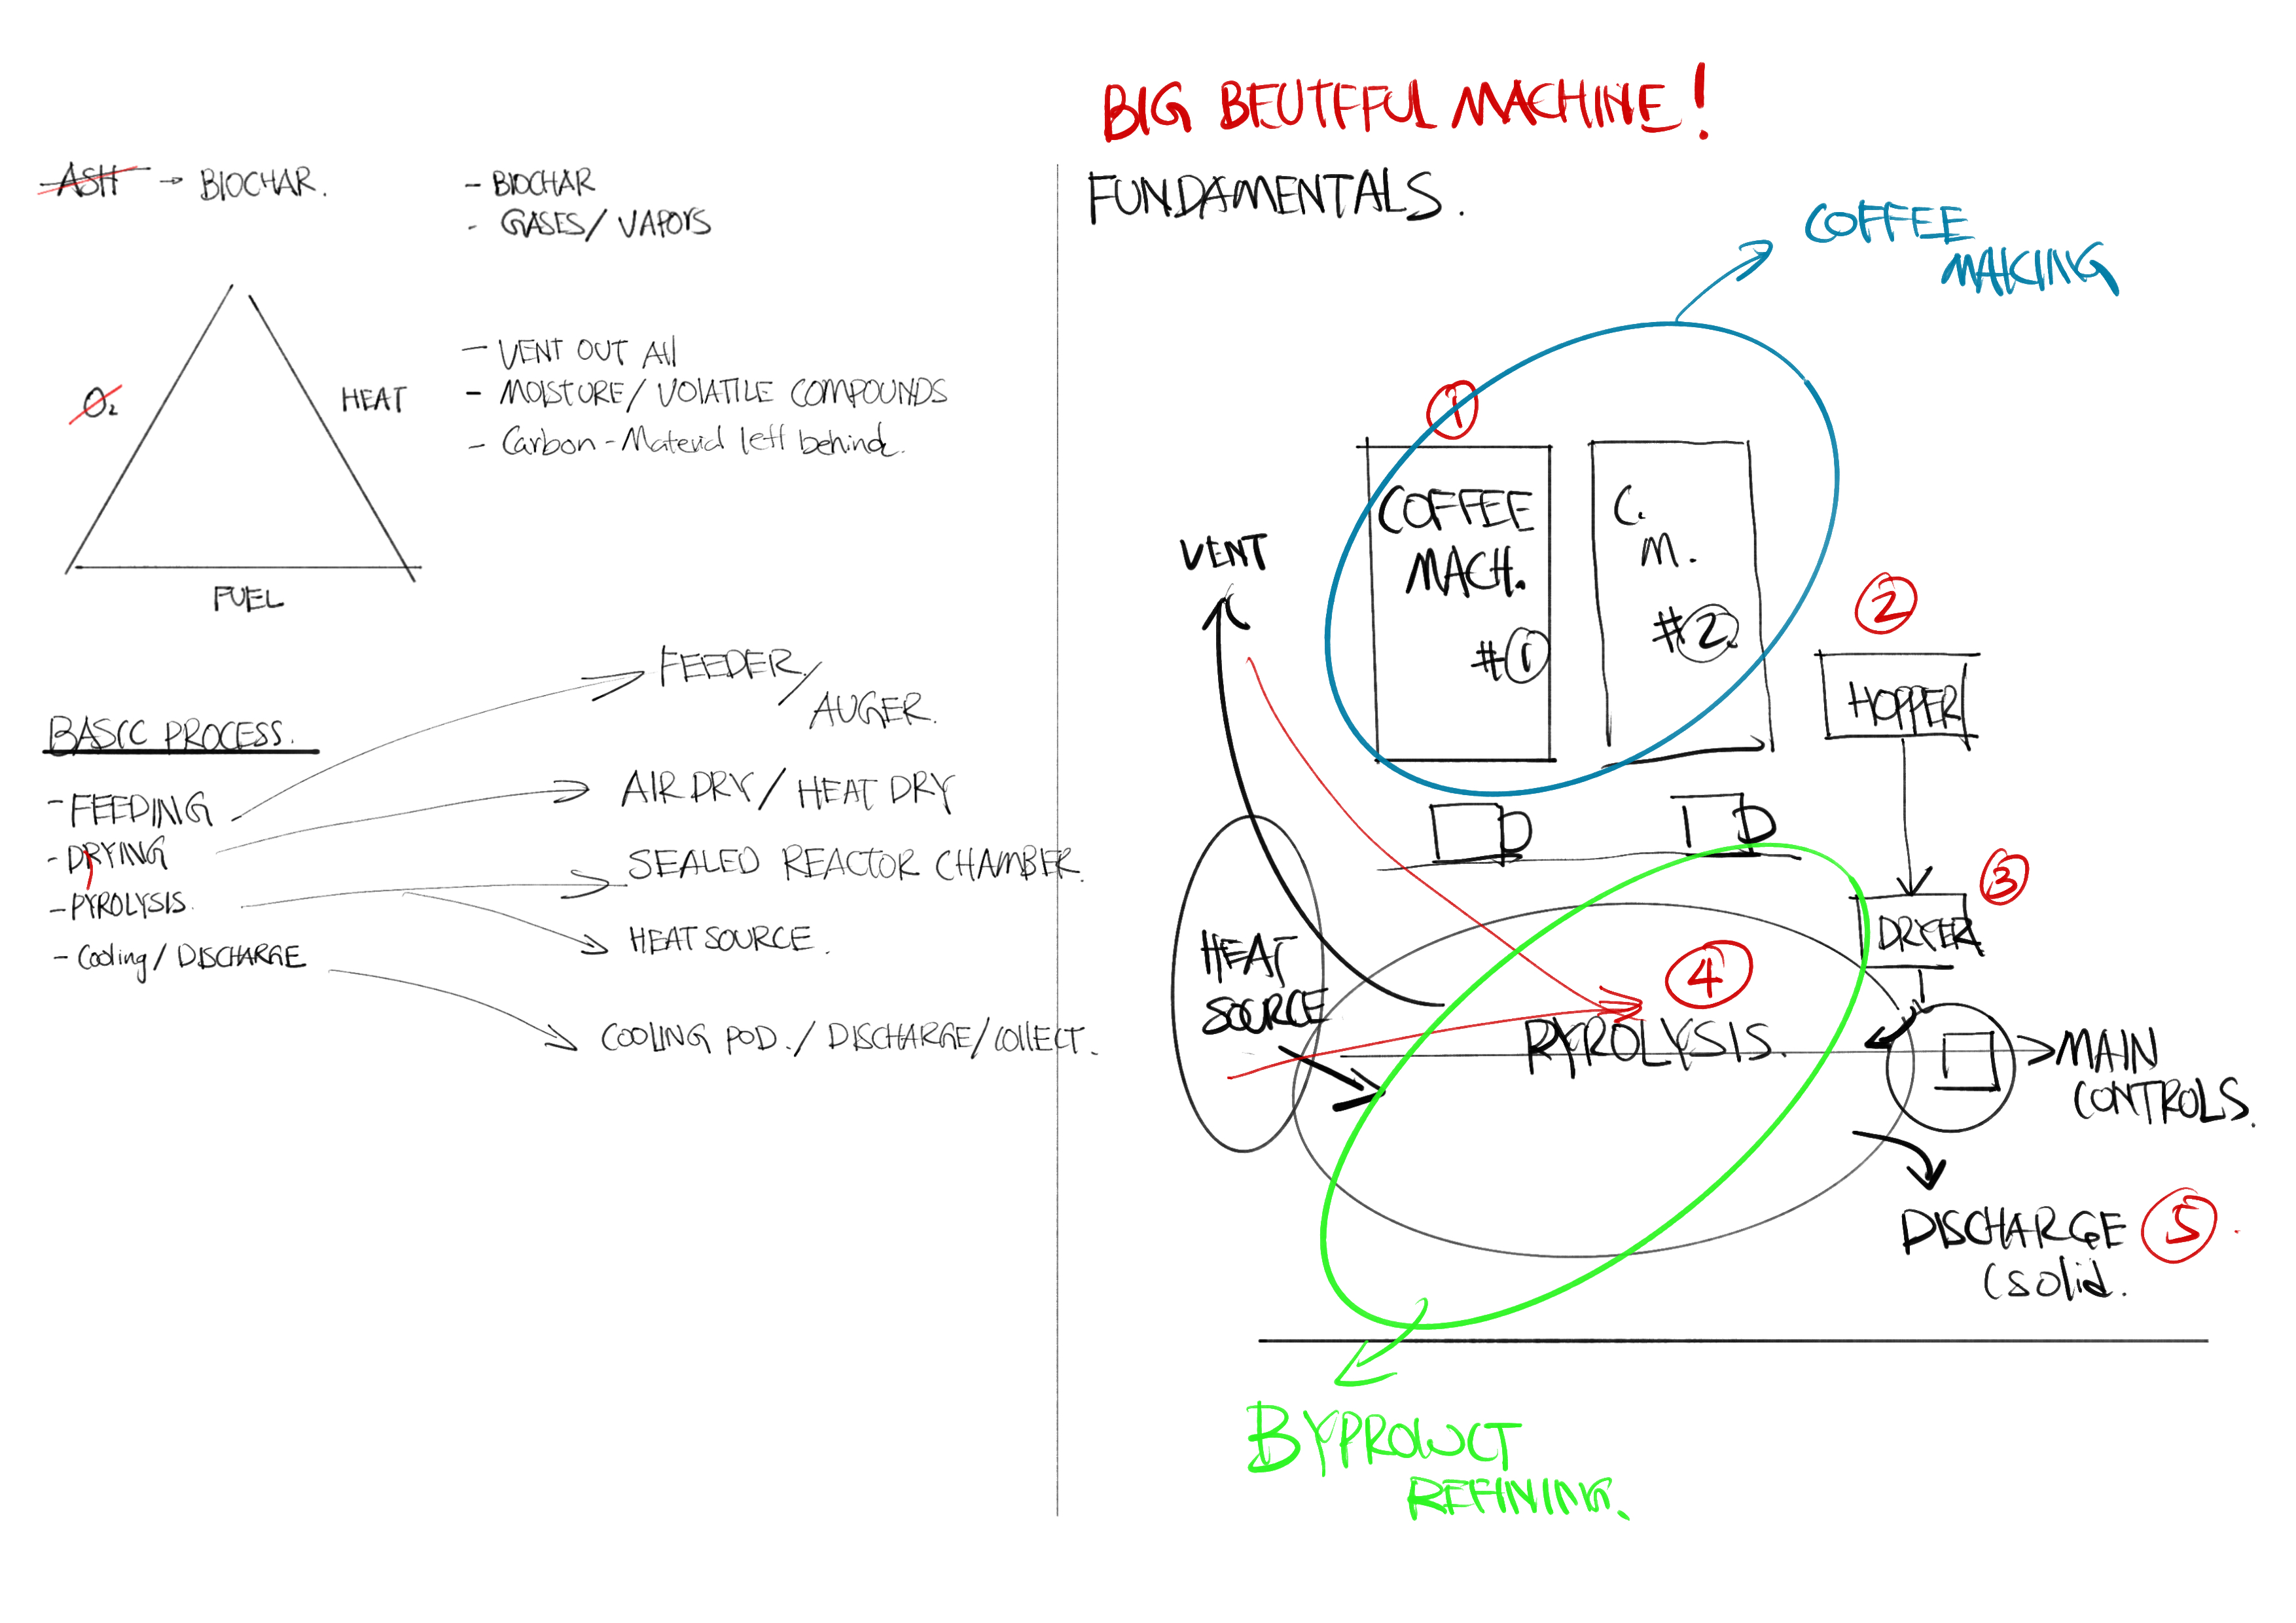 ASH → BIOCHAR.
- BIOCHAR
- GASES/ VAPORS
O₂
HEAT
FUEL
- VENT OUT All
- MOISTURE/ VOLATILE COMPOUNDS
- Carbon - Material left behind.
BASIC PROCESS.
- FEEDING
- DRYING
- PYROLYSIS.
- Cooling/ DISCHARGE
FEEDER/
AUGER.
AIR DRY/ HEAT DRY
SEALED REACTOR CHAMBER.
HEAT SOURCE.
COOLING POD./ DISCHARGE/COllECT.
BIG BEUTEFUL MACHINE!
FUNDAMENTALS.
COFFEE
MAKING
1
COFFEE
MACH.
#1
C.
M.
#2.
VENT
2
HOPPER
3
DRYER
HEAT
SOURCE
4
PYROLYSIS.
MAIN
CONTROLS.
DISCHARGE 5.
(solid.
BYPRODUCT
REFINING.